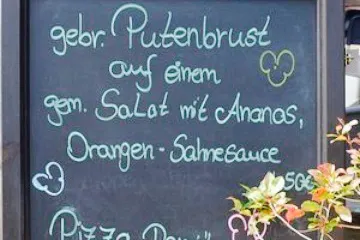 gebr. Putenbrust
auf einem
gem. Salat mit Ananas,
Orangen-Sahnesauce
50€
Pizza